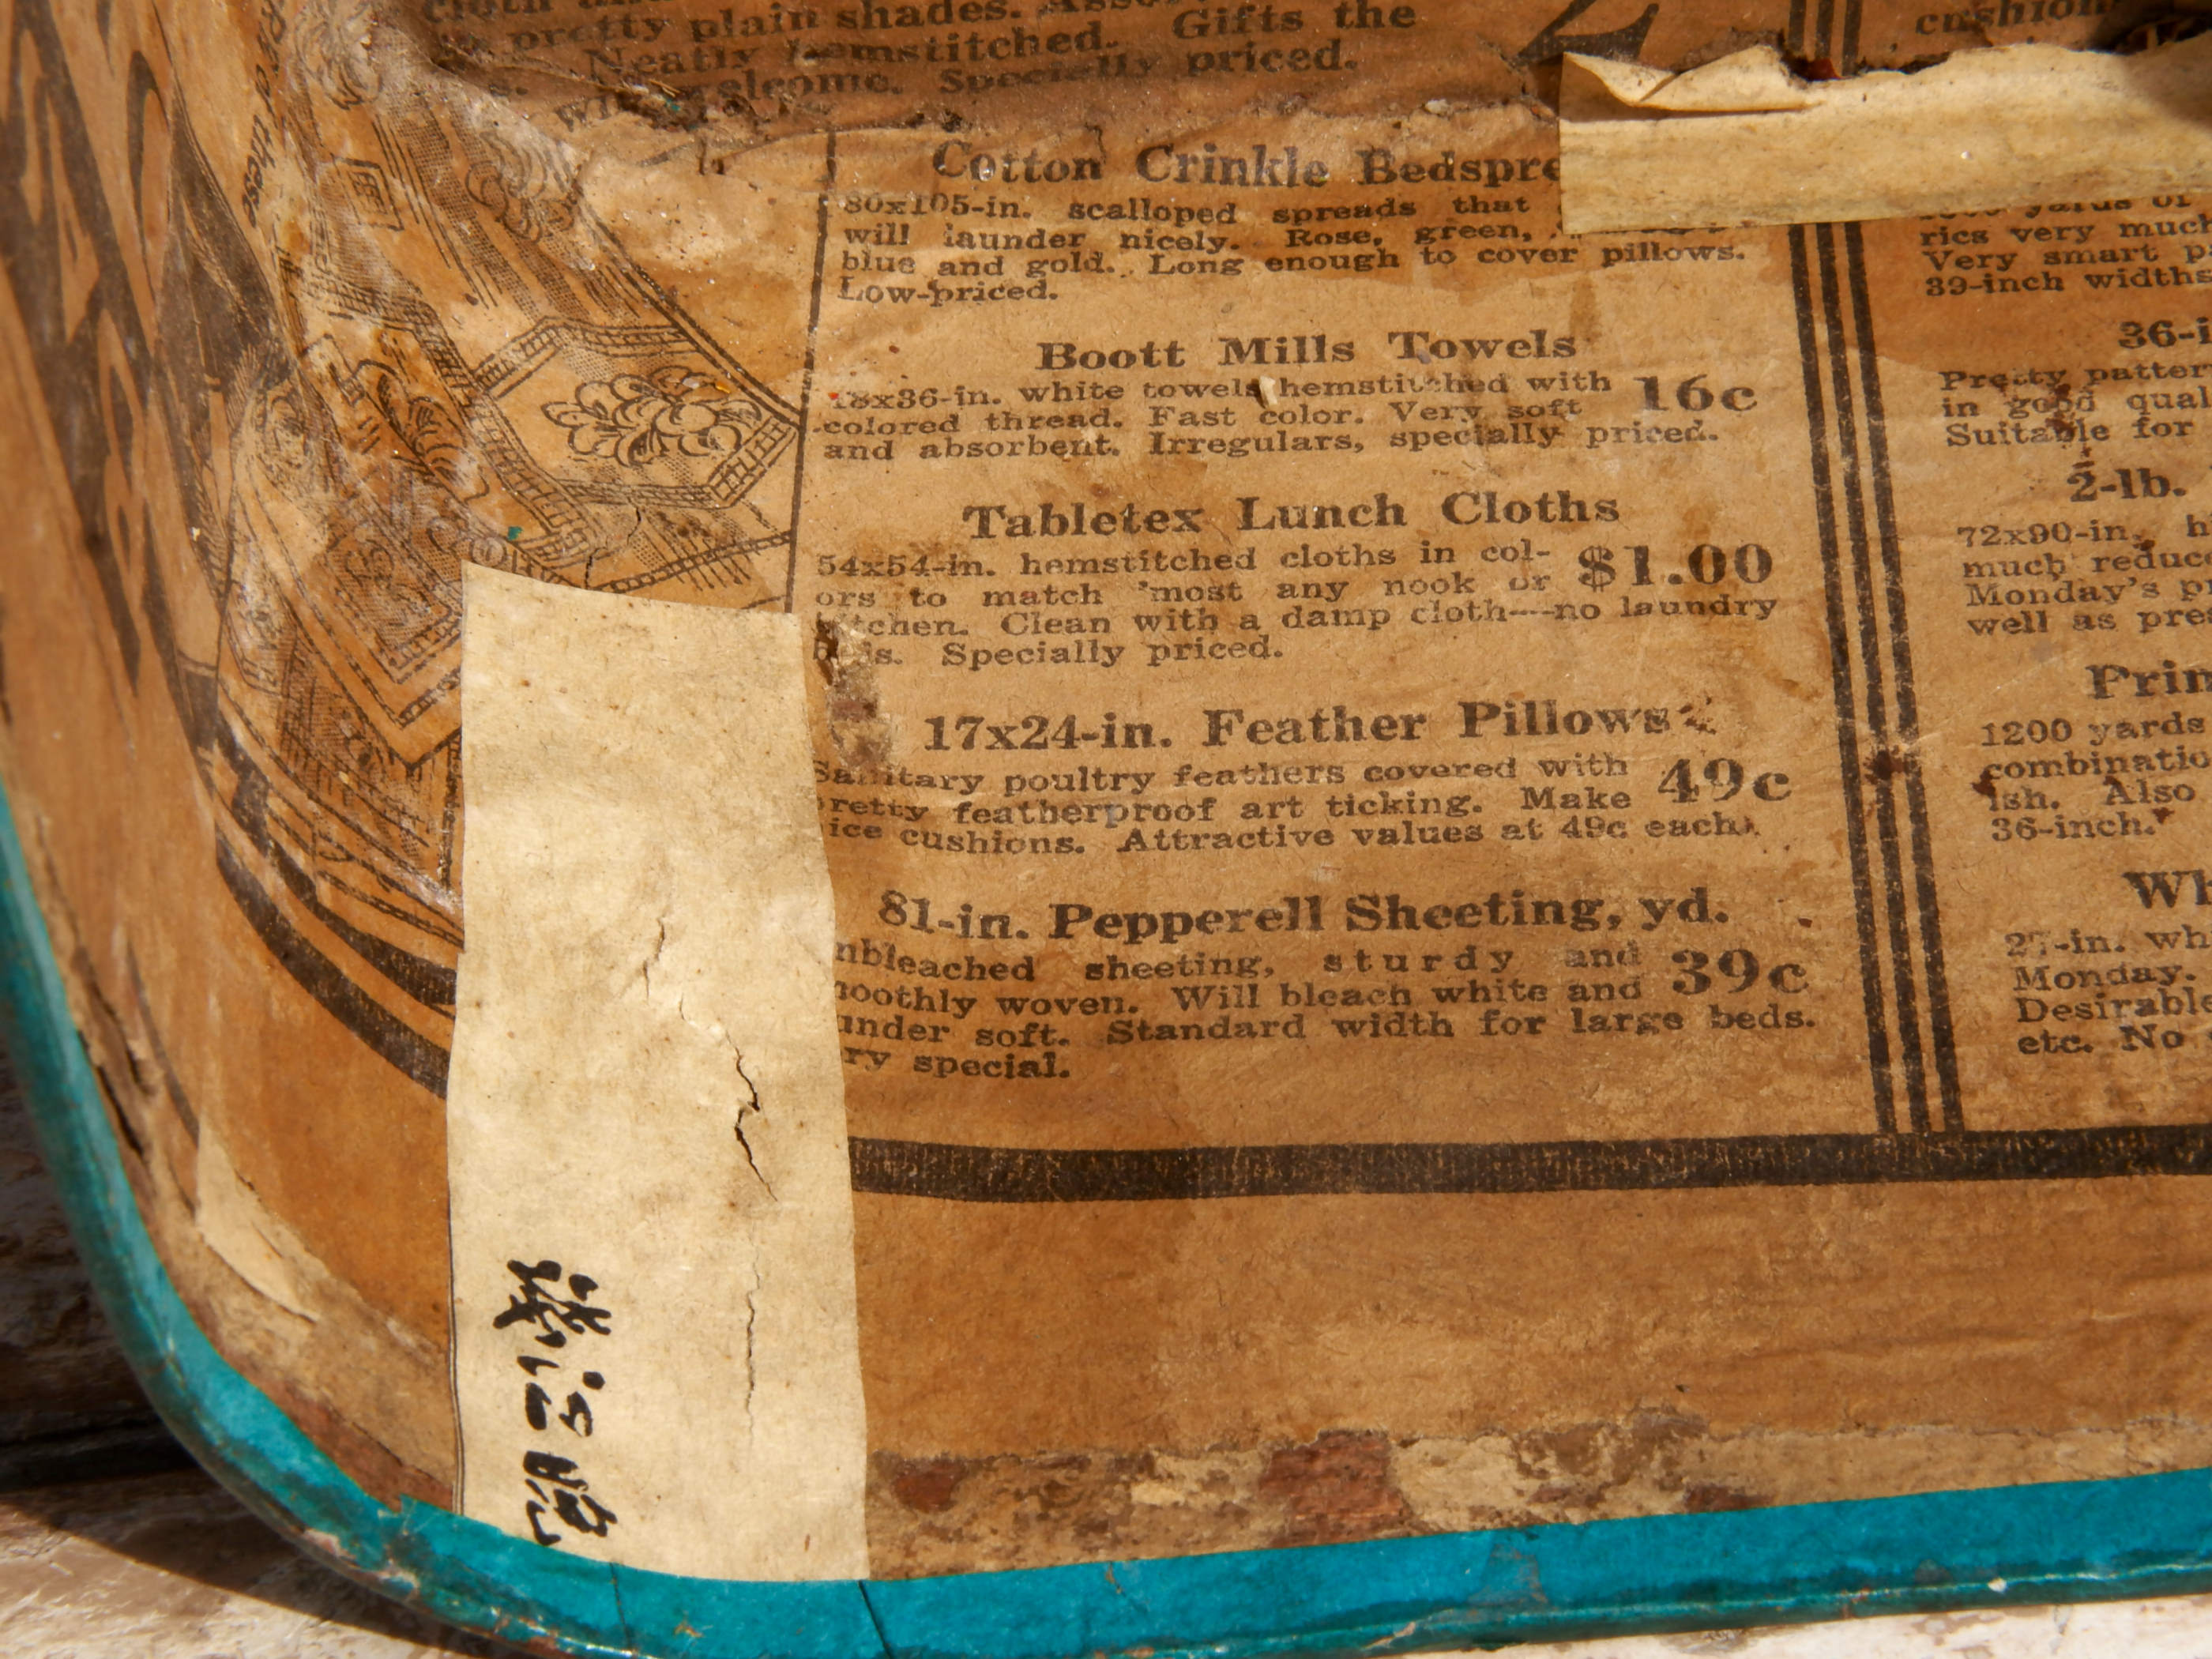 pretty plain shades.
Neatly hemstitched. Gifts the
welcome. Specially priced.
of these
Cotton Crinkle Bedspre
80x105-in. scalloped spreads that
will launder nicely. Rose, green,
blue and gold. Long enough to cover pillows.
Low-priced.
Boott Mills Towels
18x36-in. white towels hemstitched with
colored thread. Fast color. Very soft
16c
and absorbent. Irregulars, specially priced.
Tabletex Lunch Cloths
54x54-in. hemstitched cloths in col-
ors to match 'most any nook or
$1.00
kitchen. Clean with a damp cloth—no laundry
Specially priced.
17x24-in. Feather Pillows
Sanitary poultry feathers covered with
retty featherproof art ticking. Make
49c
ice cushions. Attractive values at 49c each.
81-in. Pepperell Sheeting, yd.
nbleached sheeting, sturdy and
moothly woven. Will bleach white and
39c
under soft. Standard width for large beds.
ry special.
cushion
yards of
rics very much
Very smart p
39-inch widths
36-i
Pretty patter
in good qual
Suitable for
2-lb.
72x90-in. h
much reduc
Monday's p
well as pre
Prin
1200 yards
combinatio
ish. Also
36-inch.
Wh
27-in. wh
Monday.
Desirable
etc. No